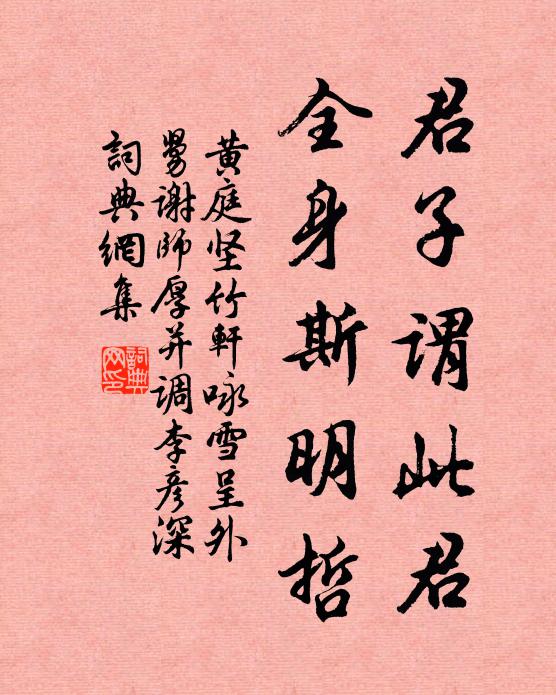 君子谓此君
全身斯明哲
黄庭坚竹軒咏雪呈外
舅谢師厚并调李彦深
詞典網集
詞典网印